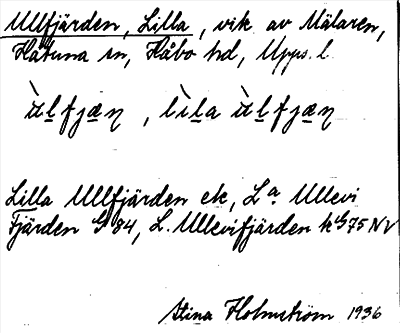 Ullfjärden, Lilla, vik av Mälaren,
Håtuna sn, Håbo hd, Upps. l.
ùḻfjæ̲ṇ, lìḻa ùḻfjæ̲ṇ
Lilla Ullfjärden ek, La Ullevi
Fjärden G84, L. Ullevifjärden kG75NV
Stina Holmström 1936